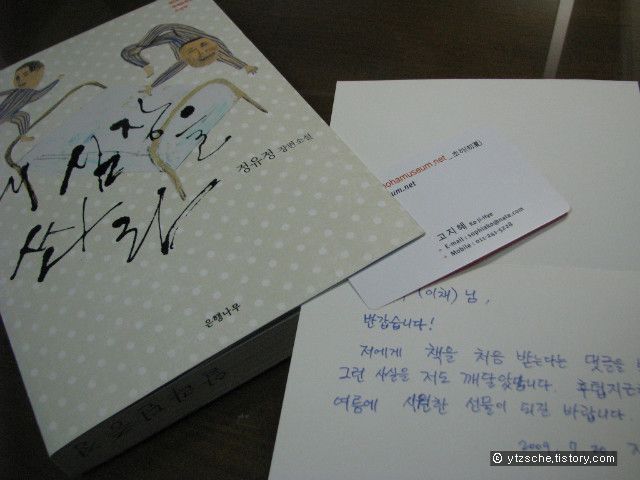 심장을
쏴라
정유정 장편소설
은행나무
ohamuseum.net
um.net
고지혜 Ko Ji-Hye
E-mail : sophiako@nate.com
Mobile : 011-241-5228
(이채) 님,
반갑습니다!
저에게 책을 처음 받는다는 댓글을
그런 사실을 저도 깨달았답니다. 후텁지근
여름에 시원한 선물이 되길 바랍니다.
2009
© ytzsche.tistory.com